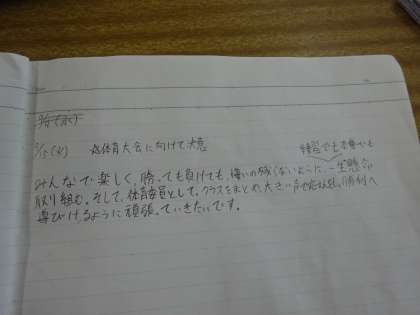 5/15(火) 体育大会に向けて決意
練習でも本番でも
みんなで楽しく、勝っても負けても、悔いの残らないように、一生懸命
取り組む。そして、体育委員として、クラスをまとめ、大きい声で応援し、勝利へ
導びけるように頑張っていきたいです。